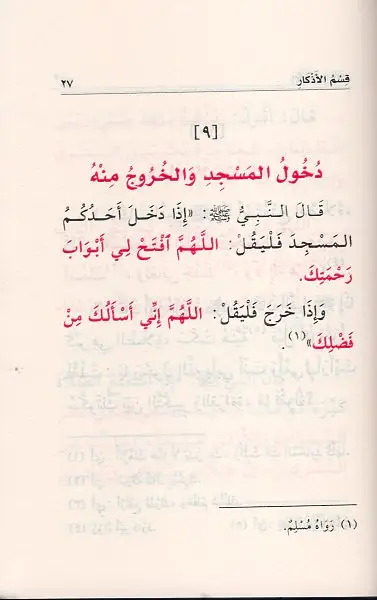 قِسْمُ الأَذْكَارِ ٢٧
[٩]
دُخُولُ المَسْجِدِ وَالخُرُوجُ مِنْهُ
قَالَ النَّبِيُّ ﷺ: «إِذَا دَخَلَ أَحَدُكُمُ
المَسْجِدَ فَلْيَقُلْ: اللَّهُمَّ ٱفْتَحْ لِي أَبْوَابَ
رَحْمَتِكَ.
وَإِذَا خَرَجَ فَلْيَقُلْ: اللَّهُمَّ إِنِّي أَسْأَلُكَ مِنْ
فَضْلِكَ»(١).
(١) رَوَاهُ مُسْلِمٌ.